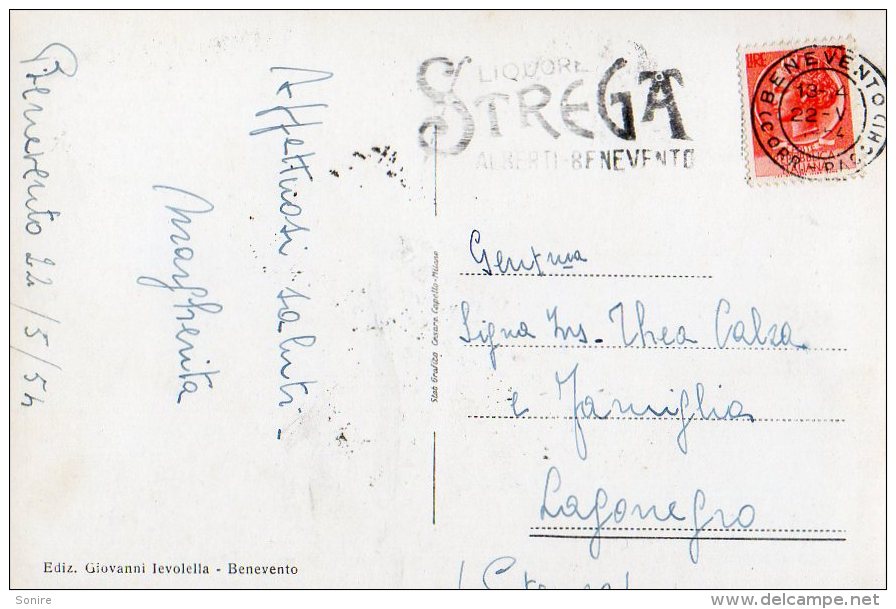 Benevento 22/5/54
Affettuosi saluti.
Margherita
LIQUORE
STREGA
ALBERTI-BENEVENTO
LIRE
BENEVENTO
CORR.
22-V
Gentma
Signa Ins. Thea Calza
e Famiglia
Lagonegro
Stab Grafico Cesare Capello-Milano
Ediz. Giovanni Ievolella - Benevento
Sonire
delcampe.net